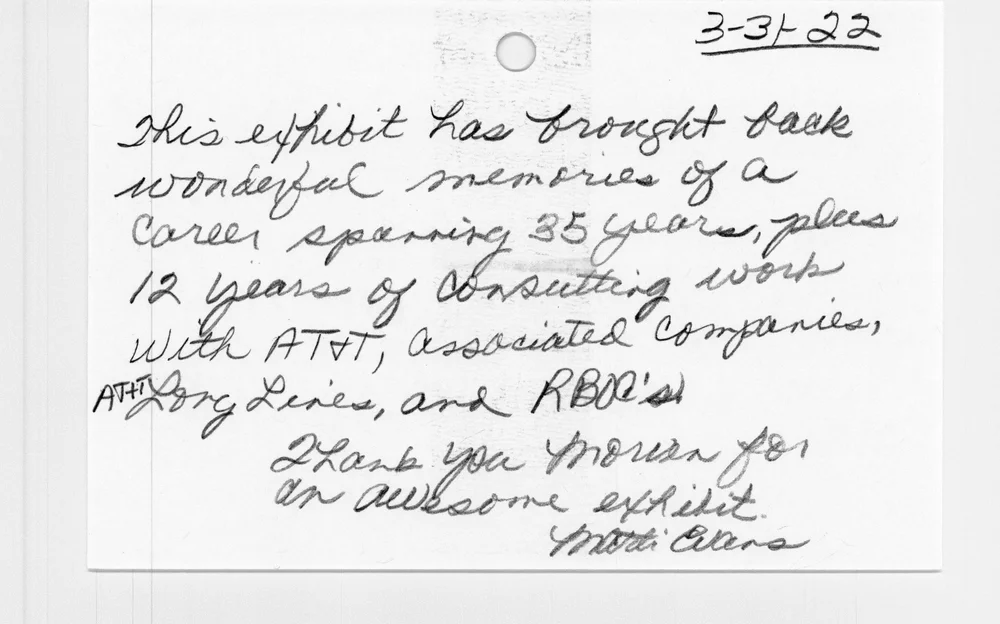 3-31-22
This exhibit has brought back
wonderful memories of a
Career spanning 35 years, plus
12 years of Consulting work
With AT&T, associated Companies,
AT&T Long Lines, and RBOC's
Thank you for
an awesome exhibit.
Evans